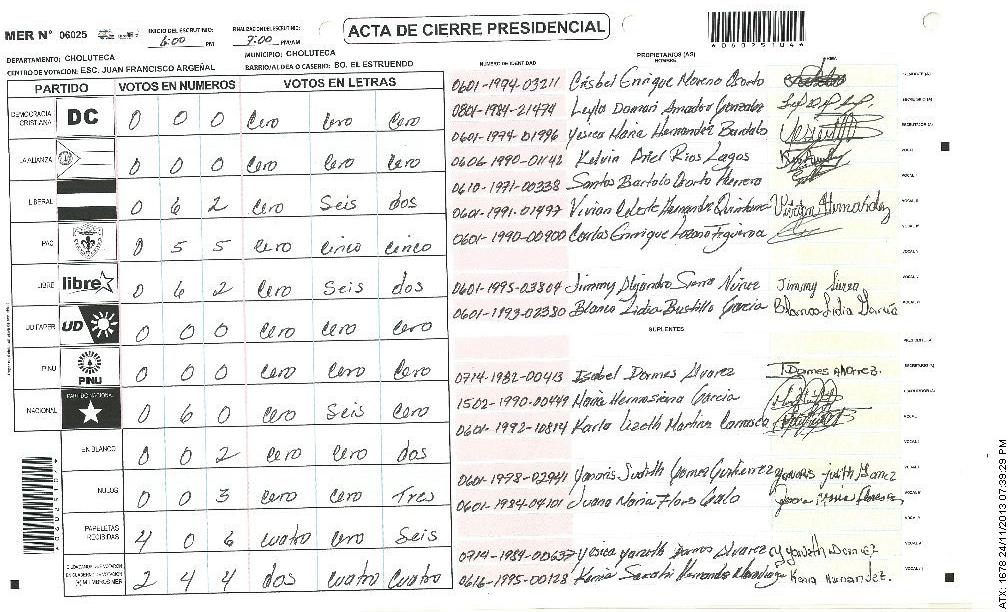 ACTA DE CIERRE PRESIDENCIAL
MER N° 06025
INICIO DEL ESCRUTINIO: 6:00 PM
FINALIZACION DEL ESCRUTINIO: 7:00 PM/AM
DEPARTAMENTO: CHOLUTECA
MUNICIPIO: CHOLUTECA
CENTRO DE VOTACION: ESC. JUAN FRANCISCO ARGEÑAL
BARRIO/ALDEA O CASERIO: BO. EL ESTRUENDO
PARTIDO VOTOS EN NUMEROS VOTOS EN LETRAS
DEMOCRACIA CRISTIANA DC 0 0 0 Cero Cero Cero
LA ALIANZA 0 0 0 Cero Cero Cero
LIBERAL 0 6 2 Cero Seis dos
PAC 0 5 5 Cero Cinco Cinco
LIBRE libre 0 6 2 Cero Seis dos
UD FAPER UD 0 0 0 Cero Cero Cero
PINU PINU 0 0 0 Cero Cero Cero
NACIONAL PARTIDO NACIONAL 0 6 0 Cero Seis Cero
EN BLANCO 0 0 2 Cero Cero dos
NULOS 0 0 3 Cero Cero Tres
PAPELETAS RECIBIDAS 4 0 6 Cuatro Cero Seis
2 4 4 dos Cuatro Cuatro
NUMERO DE IDENTIDAD
PROPIETARIOS (AS)
NOMBRE
FIRMA
0601-1994-03211 Crisbel Enrique Moreno Osorto
0801-1984-21474 Leyla Damari Amador Gonzales
0601-1974-01996 Yesica Maria Hernandez Bardalo
0606-1990-01142 Kelvin Ariel Rios Lagos
0610-1971-00338 Santos Bartolo Osorto Herrero
0601-1991-01497 Vivian Celeste Hernandez Quintana Vivian Hernandez
0601-1990-00900 Carlos Enrique Lozano Figueroa
0601-1995-03804 Jimmy Alejandro Sierra Nuñez Jimmy Sierra
0601-1993-02380 Blanca Lidia Bustillo Garcia Blanca Lidia García
SUPLENTES
0714-1982-00413 Isabel Dormes Alvarez I Dormes Alvarez.
1502-1990-00449 Maria Hermosirena Garcia
0601-1992-10814 Karla Lizeth Martinez Carrasco
0601-1978-02941 Yanoris Judith Gomez Gutierrez Yanoris Judith Gomez
0601-1984-04101 Juana Maria Flores
0714-1984-00637 Yesica Yaneth Dormes Alvarez
0616-1995-00128 Kenia Sarahi Hernandez Kenia Hernandez.
ATX: 1678 24/11/2013 07:39:29 PM